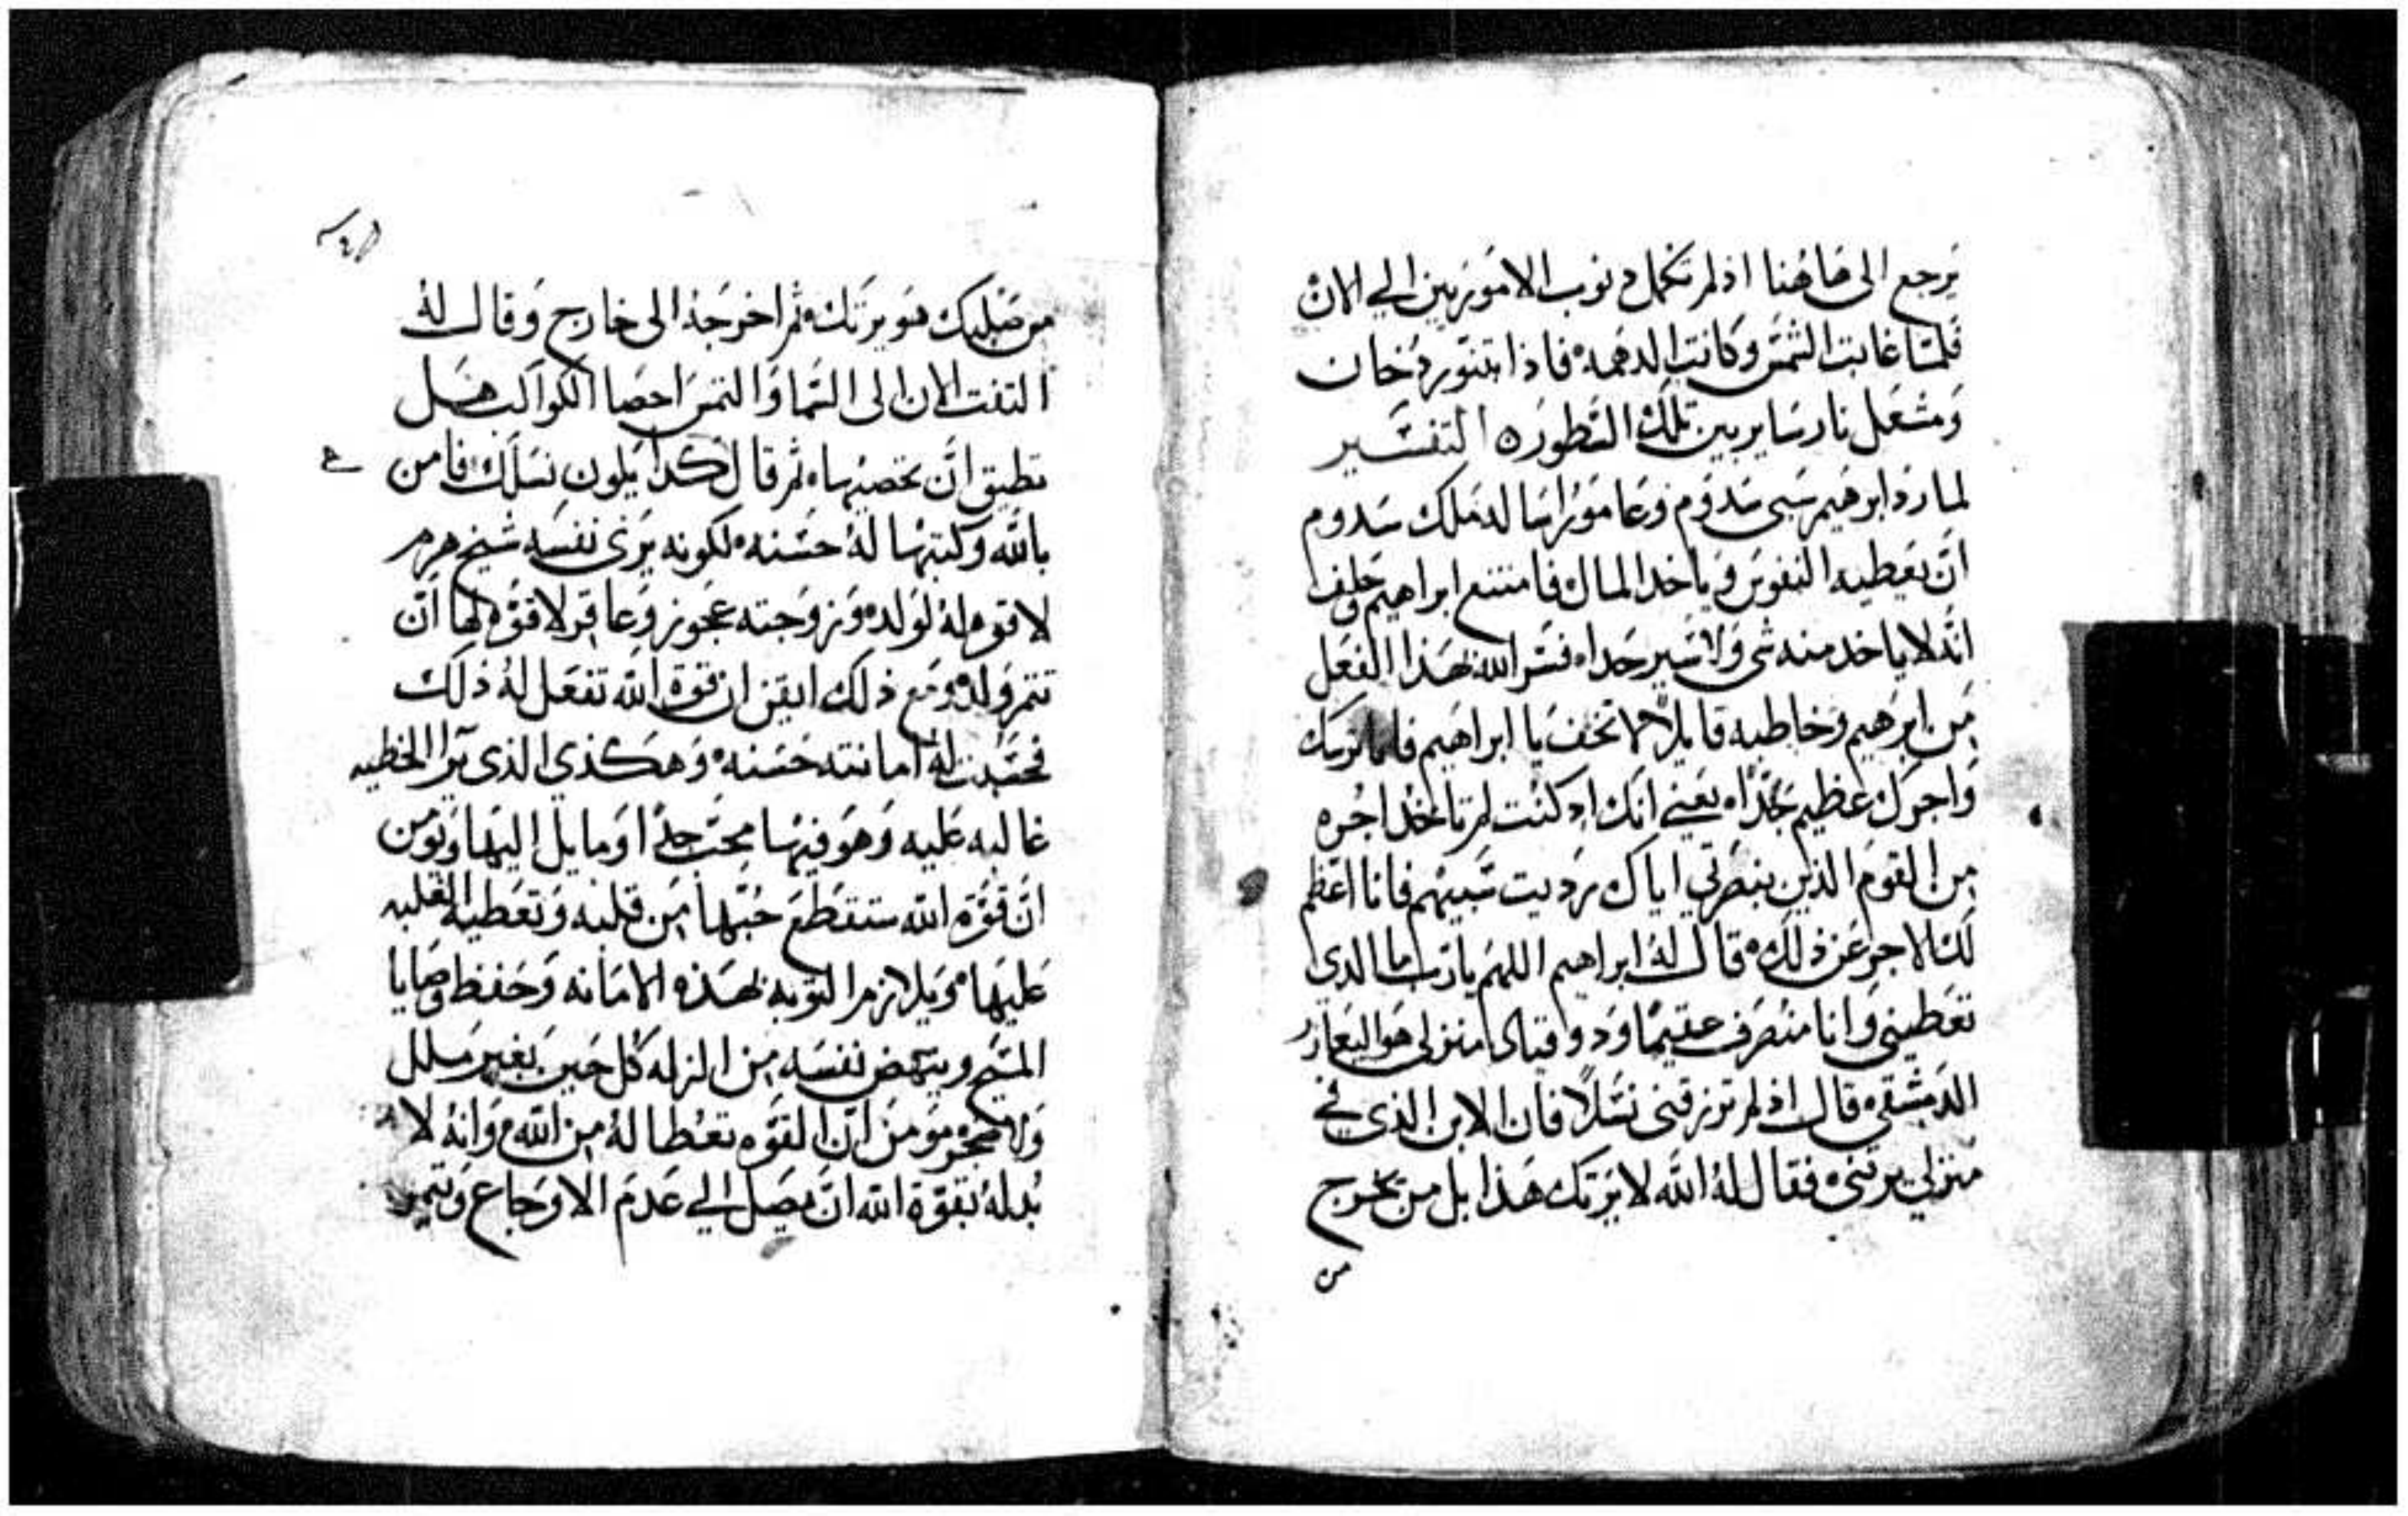 يرجع الى هاهنا اذ لم تكمل دنوب الاموريين الي الان
فلما غابت الشمس وكانت الدهمه فاذا بتنور دخان
ومشعل نار ساير بين تلك الشطوره التفسير
لما رد ابرهيم سبى سدوم وعامورا سا له ملك سدوم
ان يعطيه النفوس وياخد المال فامتنع ابراهيم وحلف
انه لا ياخد منه شى ولا سير حدا فسر الله بهذا الفعل
من ابرهيم وخاطبه قايلا لا تخف يا ابراهيم فانا ترسك
واجرك عظيم جدا يعني انك اد كنت لم تاخد اجره
من القوم الذين بنصرتي اياك رديت سبيهم فانا اعظم
لك الاجر عن ذلك قال له ابراهيم اللهم يا رب ما الدي
تعطيني وانا منصرف عقيما ود وقناى منزلى هو اليعازر
الدمشقي قال اذ لم ترزقنى نسلا فان الابن الذى في
منزلي يرثنى فقال له الله لا يرتك هذا بل من يخرج
من
من صلبك هو يرتك ثم اخرجه الى خارج وقال له
التفت الان الى السما والتمس احصا الكواكب هل
تطيق ان تحصيها ثم قال كدا يكون نسلك فامن
بالله وكتبها له حسنه لكونه يرى نفسه شيخ هرم
لا قوه له لولده وزوجته عجوز وعاقر لا قوه لها ان
تتم ولده ومع ذلك ايقن ان قوة الله تفعل له ذلك
فحسبت له امانته حسنه وهكذي الذى يرا الخطيه
غالبه عليه وهو فيها محب جدا او مايل اليها ويومن
ان قوة الله ستقطع حبها من قلبه وتعطيه الغلبه
عليها ويلازم التوبه بهذه الامانه وحفظ وصايا
المسيح وينهض نفسه من الزله كل حين بغير ملل
ولا ضجر مومن ان القوه تعطا له من الله وانه لا
بد له بقوة الله ان يصل الي عدم الاوجاع